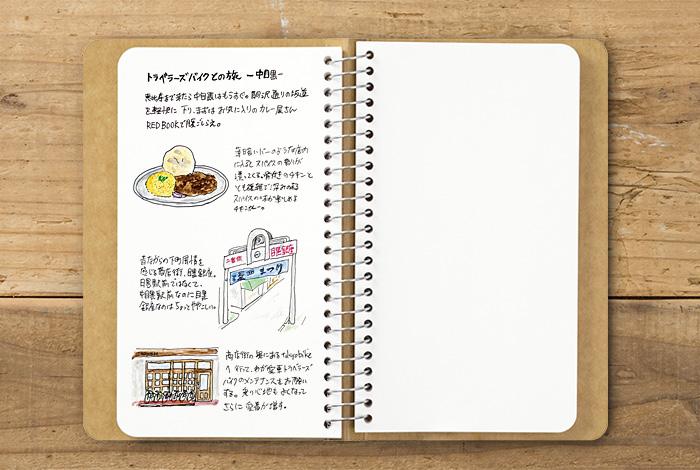 トラベラーズバイクとの旅 ー中目黒ー
恵比寿まで来たら中目黒はもうすぐ。駒沢通りの坂道
を軽快に下り、まずはお気に入りのカレー屋さん
RED BOOKで腹ごしらえ。
薄暗いバーのような店内
に入ると スパイスの香りが
漂ってくる。骨付きのチキンと
とても複雑で深みのある
スパイスの味が楽しめる
チキンカレー。
二番街 目黒銀座
まつり
昔ながらの下町風情を
感じる商店街、目黒銀座。
目黒駅前ではなくて、
中目黒駅前なのに目黒
銀座なのはちょっとややこしい。
商店街の奥にあるtokyobike
へ行って、わが愛車トラベラーズ
バイクのメンテナンスもお願い
する。乗り心地もよくなって
さらに愛着が増す。